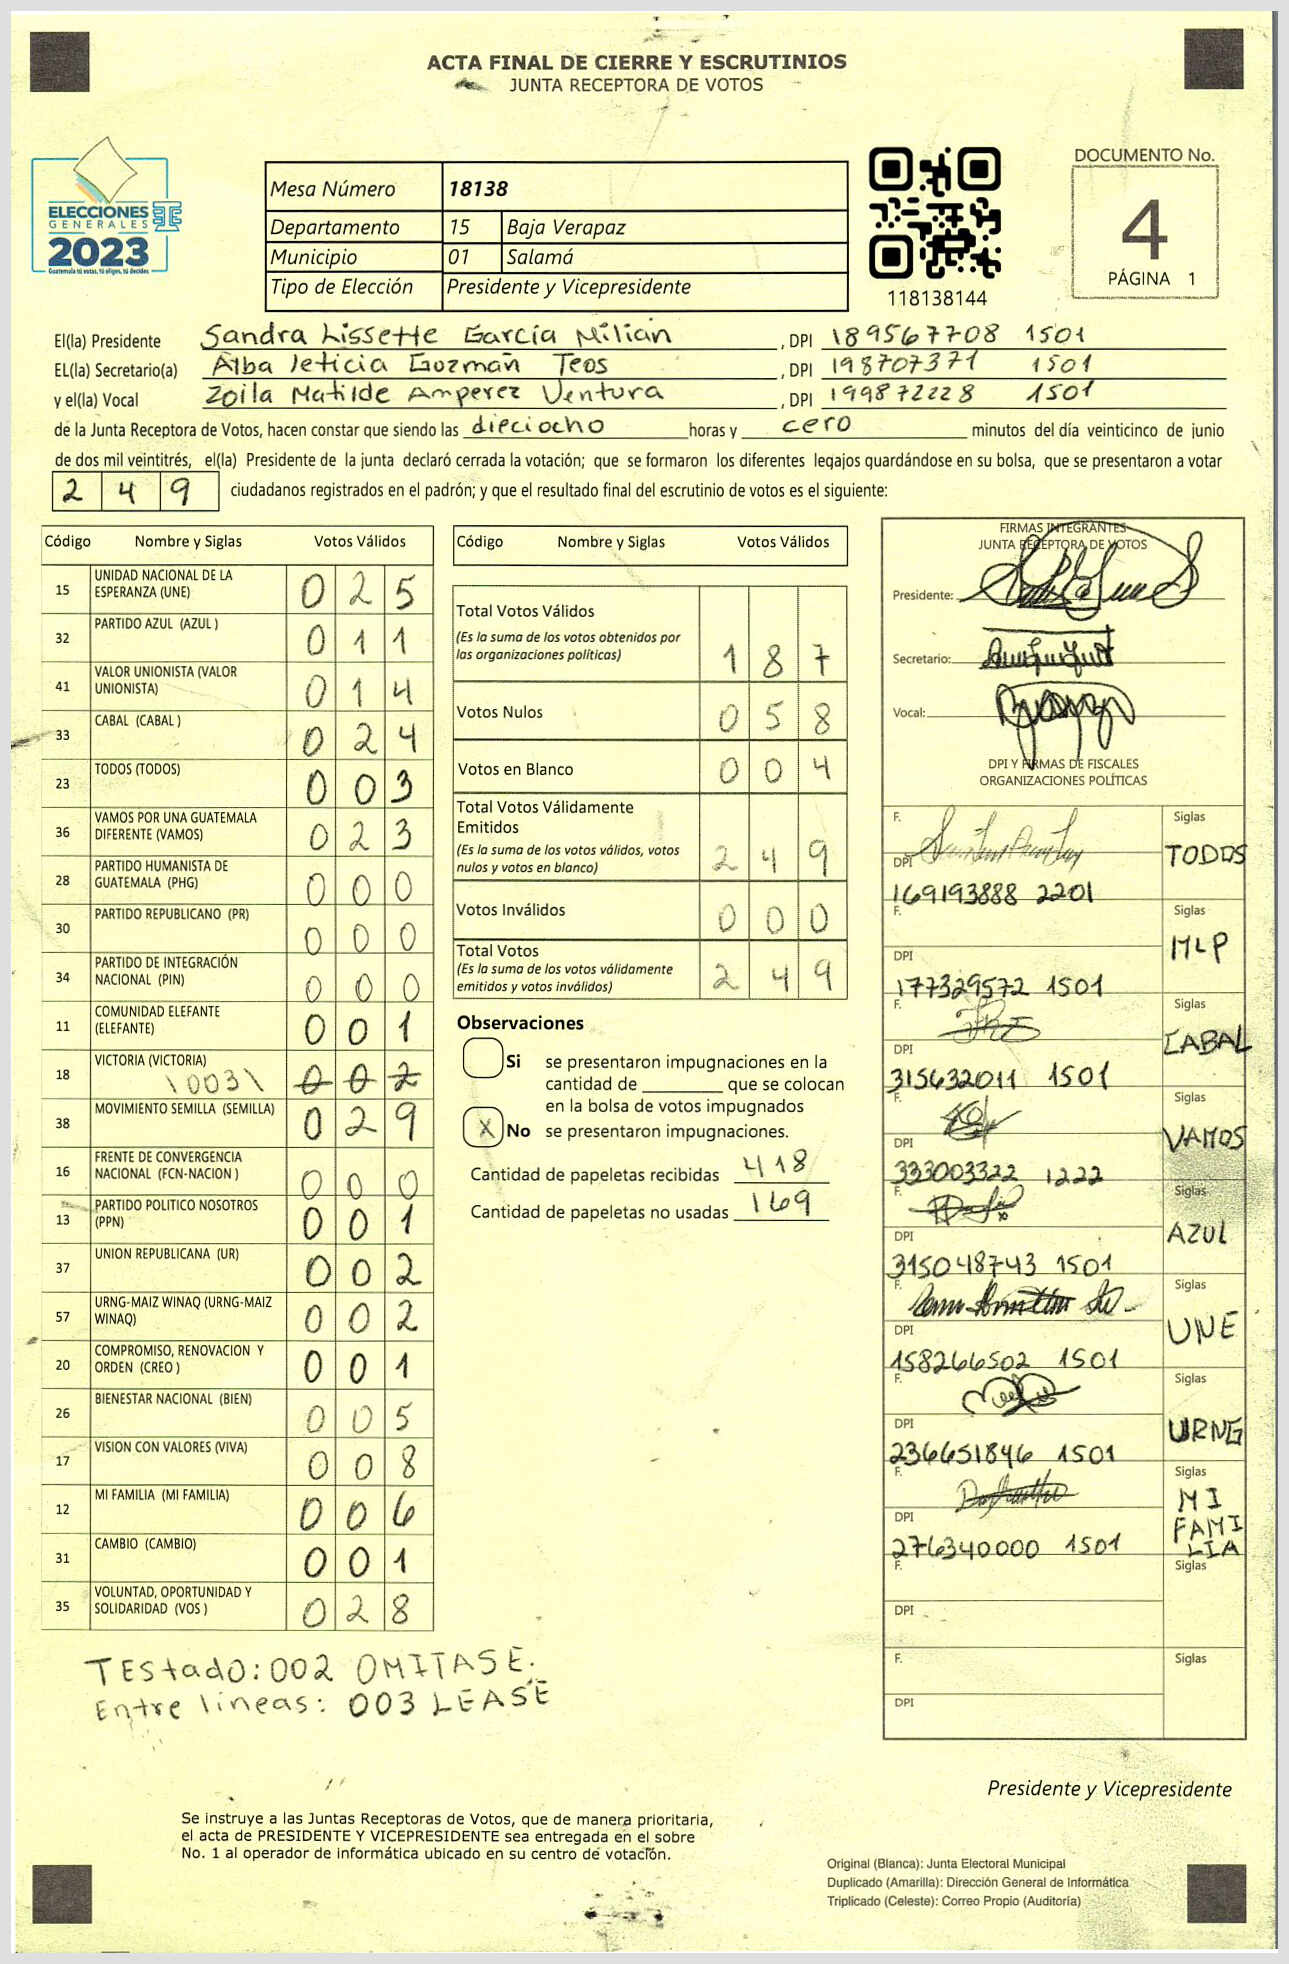 ACTA FINAL DE CIERRE Y ESCRUTINIOS
JUNTA RECEPTORA DE VOTOS
ELECCIONES
GENERALES
2023
Guatemala tú votas, tú eliges, tú decides
Mesa Número 18138
Departamento 15 Baja Verapaz
Municipio 01 Salamá
Tipo de Elección Presidente y Vicepresidente
118138144
DOCUMENTO No.
4
PÁGINA 1
El(la) Presidente Sandra Lissette García Milian , DPI 189567708 1501
EL(la) Secretario(a) Alba leticia Guzmán Teos , DPI 198707371 1501
y el(la) Vocal Zoila Matilde Amperez Ventura , DPI 199872228 1501
de la Junta Receptora de Votos, hacen constar que siendo las dieciocho horas y cero minutos del día veinticinco de junio
de dos mil veintitrés, el(la) Presidente de la junta declaró cerrada la votación; que se formaron los diferentes legajos guardándose en su bolsa, que se presentaron a votar
2 4 9 ciudadanos registrados en el padrón; y que el resultado final del escrutinio de votos es el siguiente:
Código Nombre y Siglas Votos Válidos
15 UNIDAD NACIONAL DE LA ESPERANZA (UNE) 0 2 5
32 PARTIDO AZUL (AZUL ) 0 1 1
41 VALOR UNIONISTA (VALOR UNIONISTA) 0 1 4
33 CABAL (CABAL ) 0 2 4
23 TODOS (TODOS) 0 0 3
36 VAMOS POR UNA GUATEMALA DIFERENTE (VAMOS) 0 2 3
28 PARTIDO HUMANISTA DE GUATEMALA (PHG) 0 0 0
30 PARTIDO REPUBLICANO (PR) 0 0 0
34 PARTIDO DE INTEGRACIÓN NACIONAL (PIN) 0 0 0
11 COMUNIDAD ELEFANTE (ELEFANTE) 0 0 1
18 VICTORIA (VICTORIA) \003\ 0 0 2
38 MOVIMIENTO SEMILLA (SEMILLA) 0 2 9
16 FRENTE DE CONVERGENCIA NACIONAL (FCN-NACION ) 0 0 0
13 PARTIDO POLITICO NOSOTROS (PPN) 0 0 1
37 UNION REPUBLICANA (UR) 0 0 2
57 URNG-MAIZ WINAQ (URNG-MAIZ WINAQ) 0 0 2
20 COMPROMISO, RENOVACION Y ORDEN (CREO ) 0 0 1
26 BIENESTAR NACIONAL (BIEN) 0 0 5
17 VISION CON VALORES (VIVA) 0 0 8
12 MI FAMILIA (MI FAMILIA) 0 0 6
31 CAMBIO (CAMBIO) 0 0 1
35 VOLUNTAD, OPORTUNIDAD Y SOLIDARIDAD (VOS ) 0 2 8
TEStadO: 002 OMITASE.
Entre lineas: 003 LEASE
Código Nombre y Siglas Votos Válidos
Total Votos Válidos
(Es la suma de los votos obtenidos por
las organizaciones políticas) 1 8 7
Votos Nulos 0 5 8
Votos en Blanco 0 0 4
Total Votos Válidamente
Emitidos
(Es la suma de los votos válidos, votos
nulos y votos en blanco) 2 4 9
Votos Inválidos 0 0 0
Total Votos
(Es la suma de los votos válidamente
emitidos y votos inválidos) 2 4 9
Observaciones
Si se presentaron impugnaciones en la
cantidad de ________ que se colocan
en la bolsa de votos impugnados
X No se presentaron impugnaciones.
Cantidad de papeletas recibidas 418
Cantidad de papeletas no usadas 169
FIRMAS INTEGRANTES
JUNTA RECEPTORA DE VOTOS
Presidente:
Secretario:
Vocal:
DPI Y FIRMAS DE FISCALES
ORGANIZACIONES POLÍTICAS
F. Siglas
DPI TODOS
169193888 2201
F. Siglas
DPI MLP
177329572 1501
F. Siglas
DPI CABAL
315632011 1501
F. Siglas
DPI VAMOS
333003322 1222
F. Siglas
DPI AZUL
315048743 1501
F. Siglas
DPI UNE
158266502 1501
F. Siglas
DPI URNG
236651846 1501
F. Siglas
DPI MI FAMILIA
276340000 1501
F. Siglas
DPI
F. Siglas
DPI
Presidente y Vicepresidente
Se instruye a las Juntas Receptoras de Votos, que de manera prioritaria,
el acta de PRESIDENTE Y VICEPRESIDENTE sea entregada en el sobre
No. 1 al operador de informática ubicado en su centro de votación.
Original (Blanca): Junta Electoral Municipal
Duplicado (Amarilla): Dirección General de Informática
Triplicado (Celeste): Correo Propio (Auditoría)